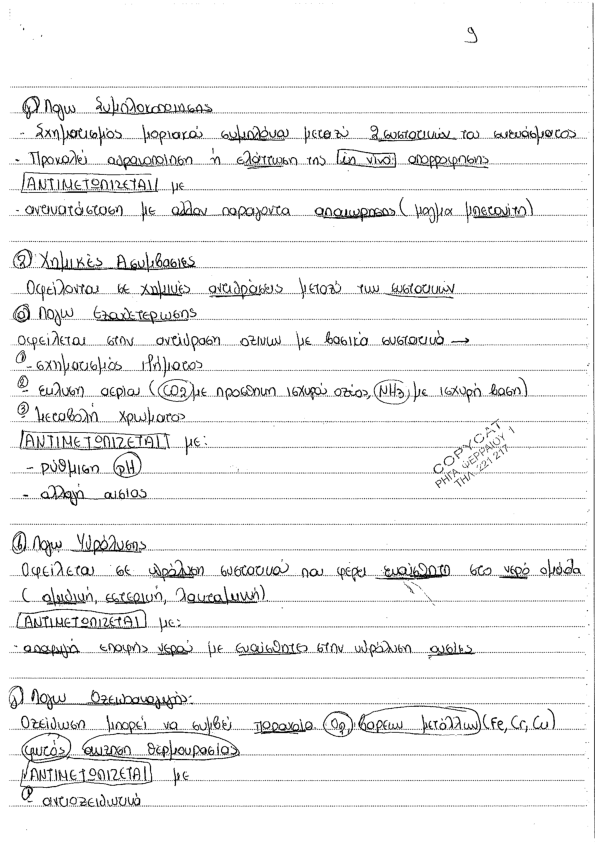 9
ζ) Λόγω Συμπλοκοποίησης
- Σχηματισμός μοριακού συμπλόκου μεταξύ 2 συστατικών του σκευάσματος
- Προκαλεί αδρανοποίηση ή ελάττωση της in vivo απορρόφησης
ΑΝΤΙΜΕΤΩΠΙΖΕΤΑΙ με
- αντικατάσταση με άλλον παράγοντα απαιώρησης (μάγμα μπετονίτη)
② Χημικές Ασυμβασίες
Οφείλονται σε χημικές αντιδράσεις μεταξύ των συστατικών
α) Λόγω Εξουδετέρωσης
οφείλεται στην αντίδραση όξινων με βασικά συστατικά →
① - σχηματισμός ιζήματος
② - έκλυση αερίου (CO2 με προσθήκη ισχυρού οξέος, NH3, με ισχυρή βάση)
③ - μεταβολή χρώματος
ΑΝΤΙΜΕΤΩΠΙΖΕΤΑΙ με:
- ρύθμιση pH
- αλλαγή ουσίας
COPYCAT
ΡΗΓΑ ΦΕΡΡΑΙΟΥ 1
ΤΗΛ. 221 217
β) Λόγω Υδρόλυσης
Οφείλεται σε υδρόλυση συστατικού που φέρει ευαίσθητη στο νερό ομάδα
(αμιδική, εστερική, λακταμική)
ΑΝΤΙΜΕΤΩΠΙΖΕΤΑΙ με:
- αποφυγή επαφής νερού με ευαίσθητες στην υδρόλυση ουσίες
γ) Λόγω Οξειδοαναγωγής:
Οξείδωση μπορεί να συμβεί παρουσία O2, βαρέων μετάλλων (Fe, Cr, Cu)
φωτός, αύξηση θερμοκρασίας
ΑΝΤΙΜΕΤΩΠΙΖΕΤΑΙ με
① αντιοξειδωτικά